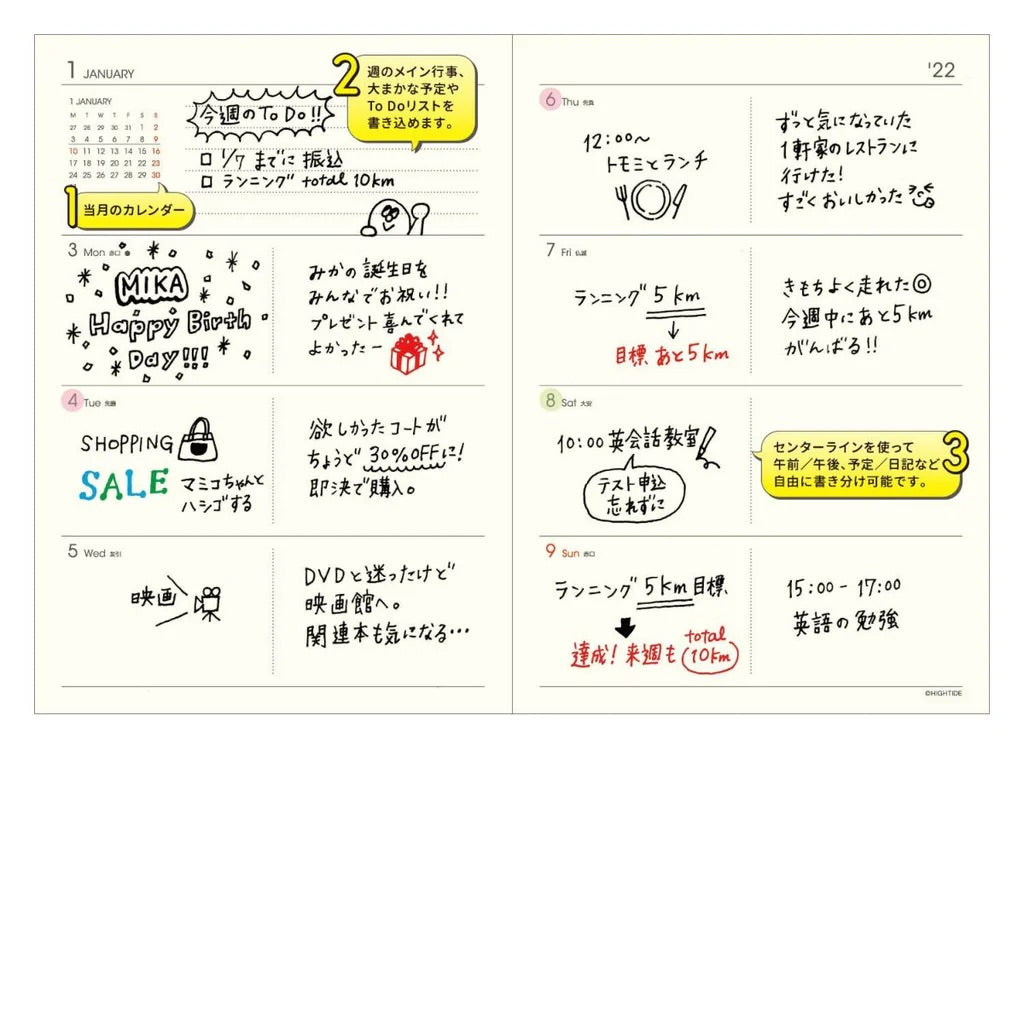 1 JANUARY
1 JANUARY
M T W T F S S
27 28 29 30 31 1 2
3 4 5 6 7 8 9
10 11 12 13 14 15 16
17 18 19 20 21 22 23
24 25 26 27 28 29 30
1 当月のカレンダー
今週のTo Do!!
□ 1/7 までに 振込
□ ランニング total 10km
2 週のメイン行事、
大まかな予定や
To Doリストを
書き込めます。
3 Mon 赤口
MIKA
Happy Birth
Day!!!
みかの誕生日を
みんなでお祝い!!
プレゼント喜んでくれて
よかったー
4 Tue 先勝
SHOPPING
SALE
マミコちゃんと
ハシゴする
欲しかったコートが
ちょうど30%OFFに!
即決で購入。
5 Wed 友引
映画
DVDと迷ったけど
映画館へ。
関連本も気になる…
'22
6 Thu 先負
12:00〜
トモミとランチ
ずっと気になっていた
1軒家のレストランに
行けた!
すごくおいしかった
7 Fri 仏滅
ランニング 5km
目標 あと5km
きもちよく走れた◎
今週中にあと5km
がんばる!!
8 Sat 大安
10:00 英会話教室
テスト申込
忘れずに
センターラインを使って
午前/午後、予定/日記など
自由に書き分け可能です。
3
9 Sun 赤口
ランニング 5km 目標
達成! 来週も total
10km
15:00 - 17:00
英語の勉強
©HIGHTIDE